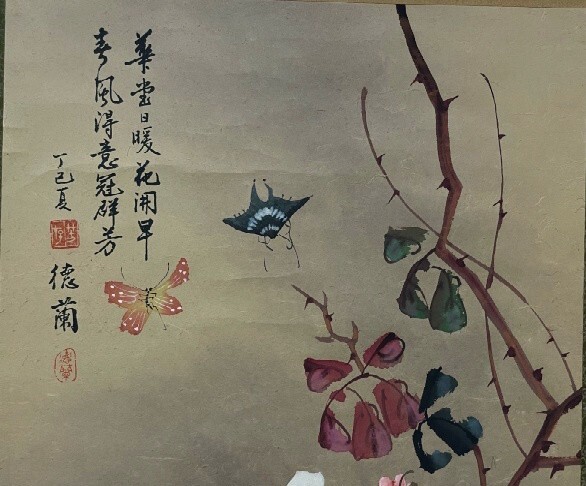 華堂日暖花開早
春風得意冠群芳
丁巳夏
德蘭